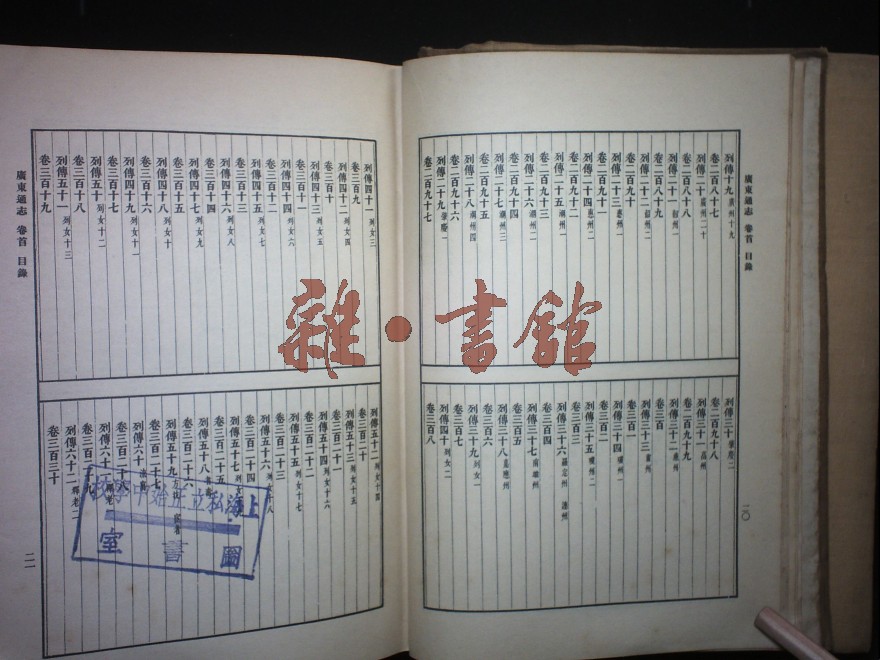 廣東通志 卷首 目錄
列傳十九 廣州十九
卷二百八十七
列傳二十 廣州二十
卷二百八十八
列傳二十一 韶州一
卷二百八十九
列傳二十二 韶州二
卷二百九十
列傳二十三 惠州一
卷二百九十一
列傳二十四 惠州二
卷二百九十二
列傳二十五 潮州一
卷二百九十三
列傳二十六 潮州二
卷二百九十四
列傳二十七 潮州三
卷二百九十五
列傳二十八 潮州四
卷二百九十六
列傳二十九 肇慶一
卷二百九十七
列傳三十 肇慶二
卷二百九十八
列傳三十一 高州
卷二百九十九
列傳三十二 廉州
卷三百
列傳三十三 雷州
卷三百一
列傳三十四 瓊州一
卷三百二
列傳三十五 瓊州二
卷三百三
列傳三十六 羅定州 連州
卷三百四
列傳三十七 南雄州
卷三百五
列傳三十八 嘉應州
卷三百六
列傳三十九 列女一
卷三百七
列傳四十 列女二
卷三百八
一〇
列傳四十一 列女三
卷三百九
列傳四十二 列女四
卷三百十
列傳四十三 列女五
卷三百十一
列傳四十四 列女六
卷三百十二
列傳四十五 列女七
卷三百十三
列傳四十六 列女八
卷三百十四
列傳四十七 列女九
卷三百十五
列傳四十八 列女十
卷三百十六
列傳四十九 列女十一
卷三百十七
列傳五十 列女十二
卷三百十八
列傳五十一 列女十三
卷三百十九
列傳五十二 列女十四
卷三百二十
列傳五十三 列女十五
卷三百二十一
列傳五十四 列女十六
卷三百二十二
列傳五十五 列女十七
卷三百二十三
列傳五十六 列女十八
卷三百二十四
列傳五十七 列女
卷三百二十五
列傳五十八
卷三百二十六
列傳五十九 方伎 宦者
卷三百二十七
列傳六十
卷三百二十八
列傳六十一 釋老
卷三百二十九
列傳六十二 釋老二
卷三百三十
廣東通志 卷首 目錄
一一
上海私立正始中學校
圖書室
雜·書館